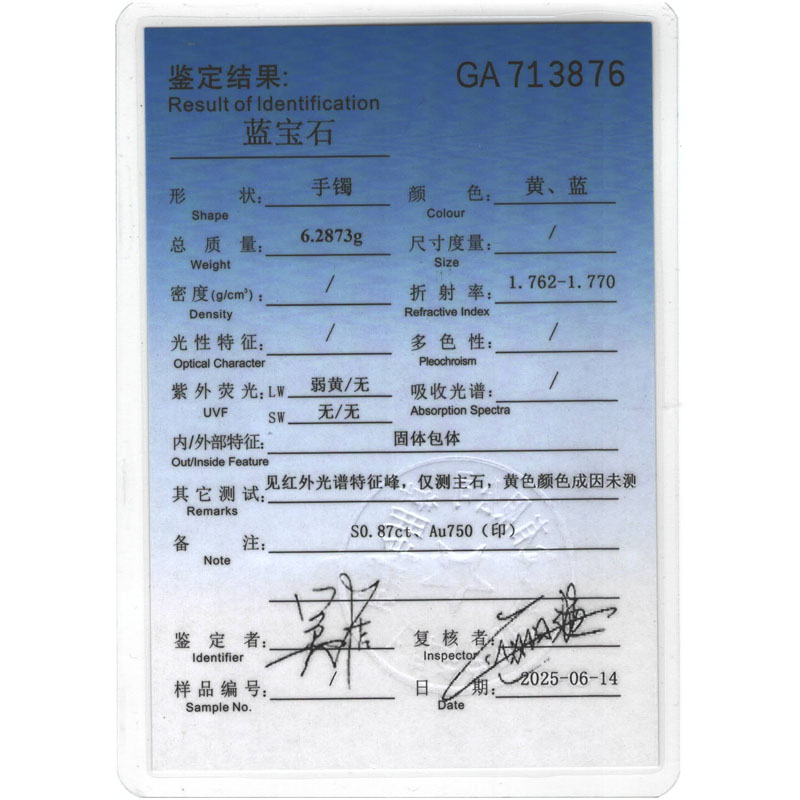 鉴定结果: GA 713876
Result of Identification
蓝宝石
形 状: 手镯 颜 色: 黄、蓝
Shape Colour
总 质 量: 6.2873g 尺寸度量: /
Weight Size
密 度(g/cm³): / 折 射 率: 1.762-1.770
Density Refractive Index
光性特征: / 多 色 性: /
Optical Character Pleochroism
紫外荧光: LW 弱黄/无 吸收光谱: /
UVF SW 无/无 Absorption Spectra
内/外部特征: 固体包体
Out/Inside Feature
其它测试: 见红外光谱特征峰，仅测主石，黄色颜色成因未测
Remarks
备 注: S0.87ct、Au750（印）
Note
鉴 定 者: 复 核 者:
Identifier Inspector
样品编号: / 日 期: 2025-06-14
Sample No. Date